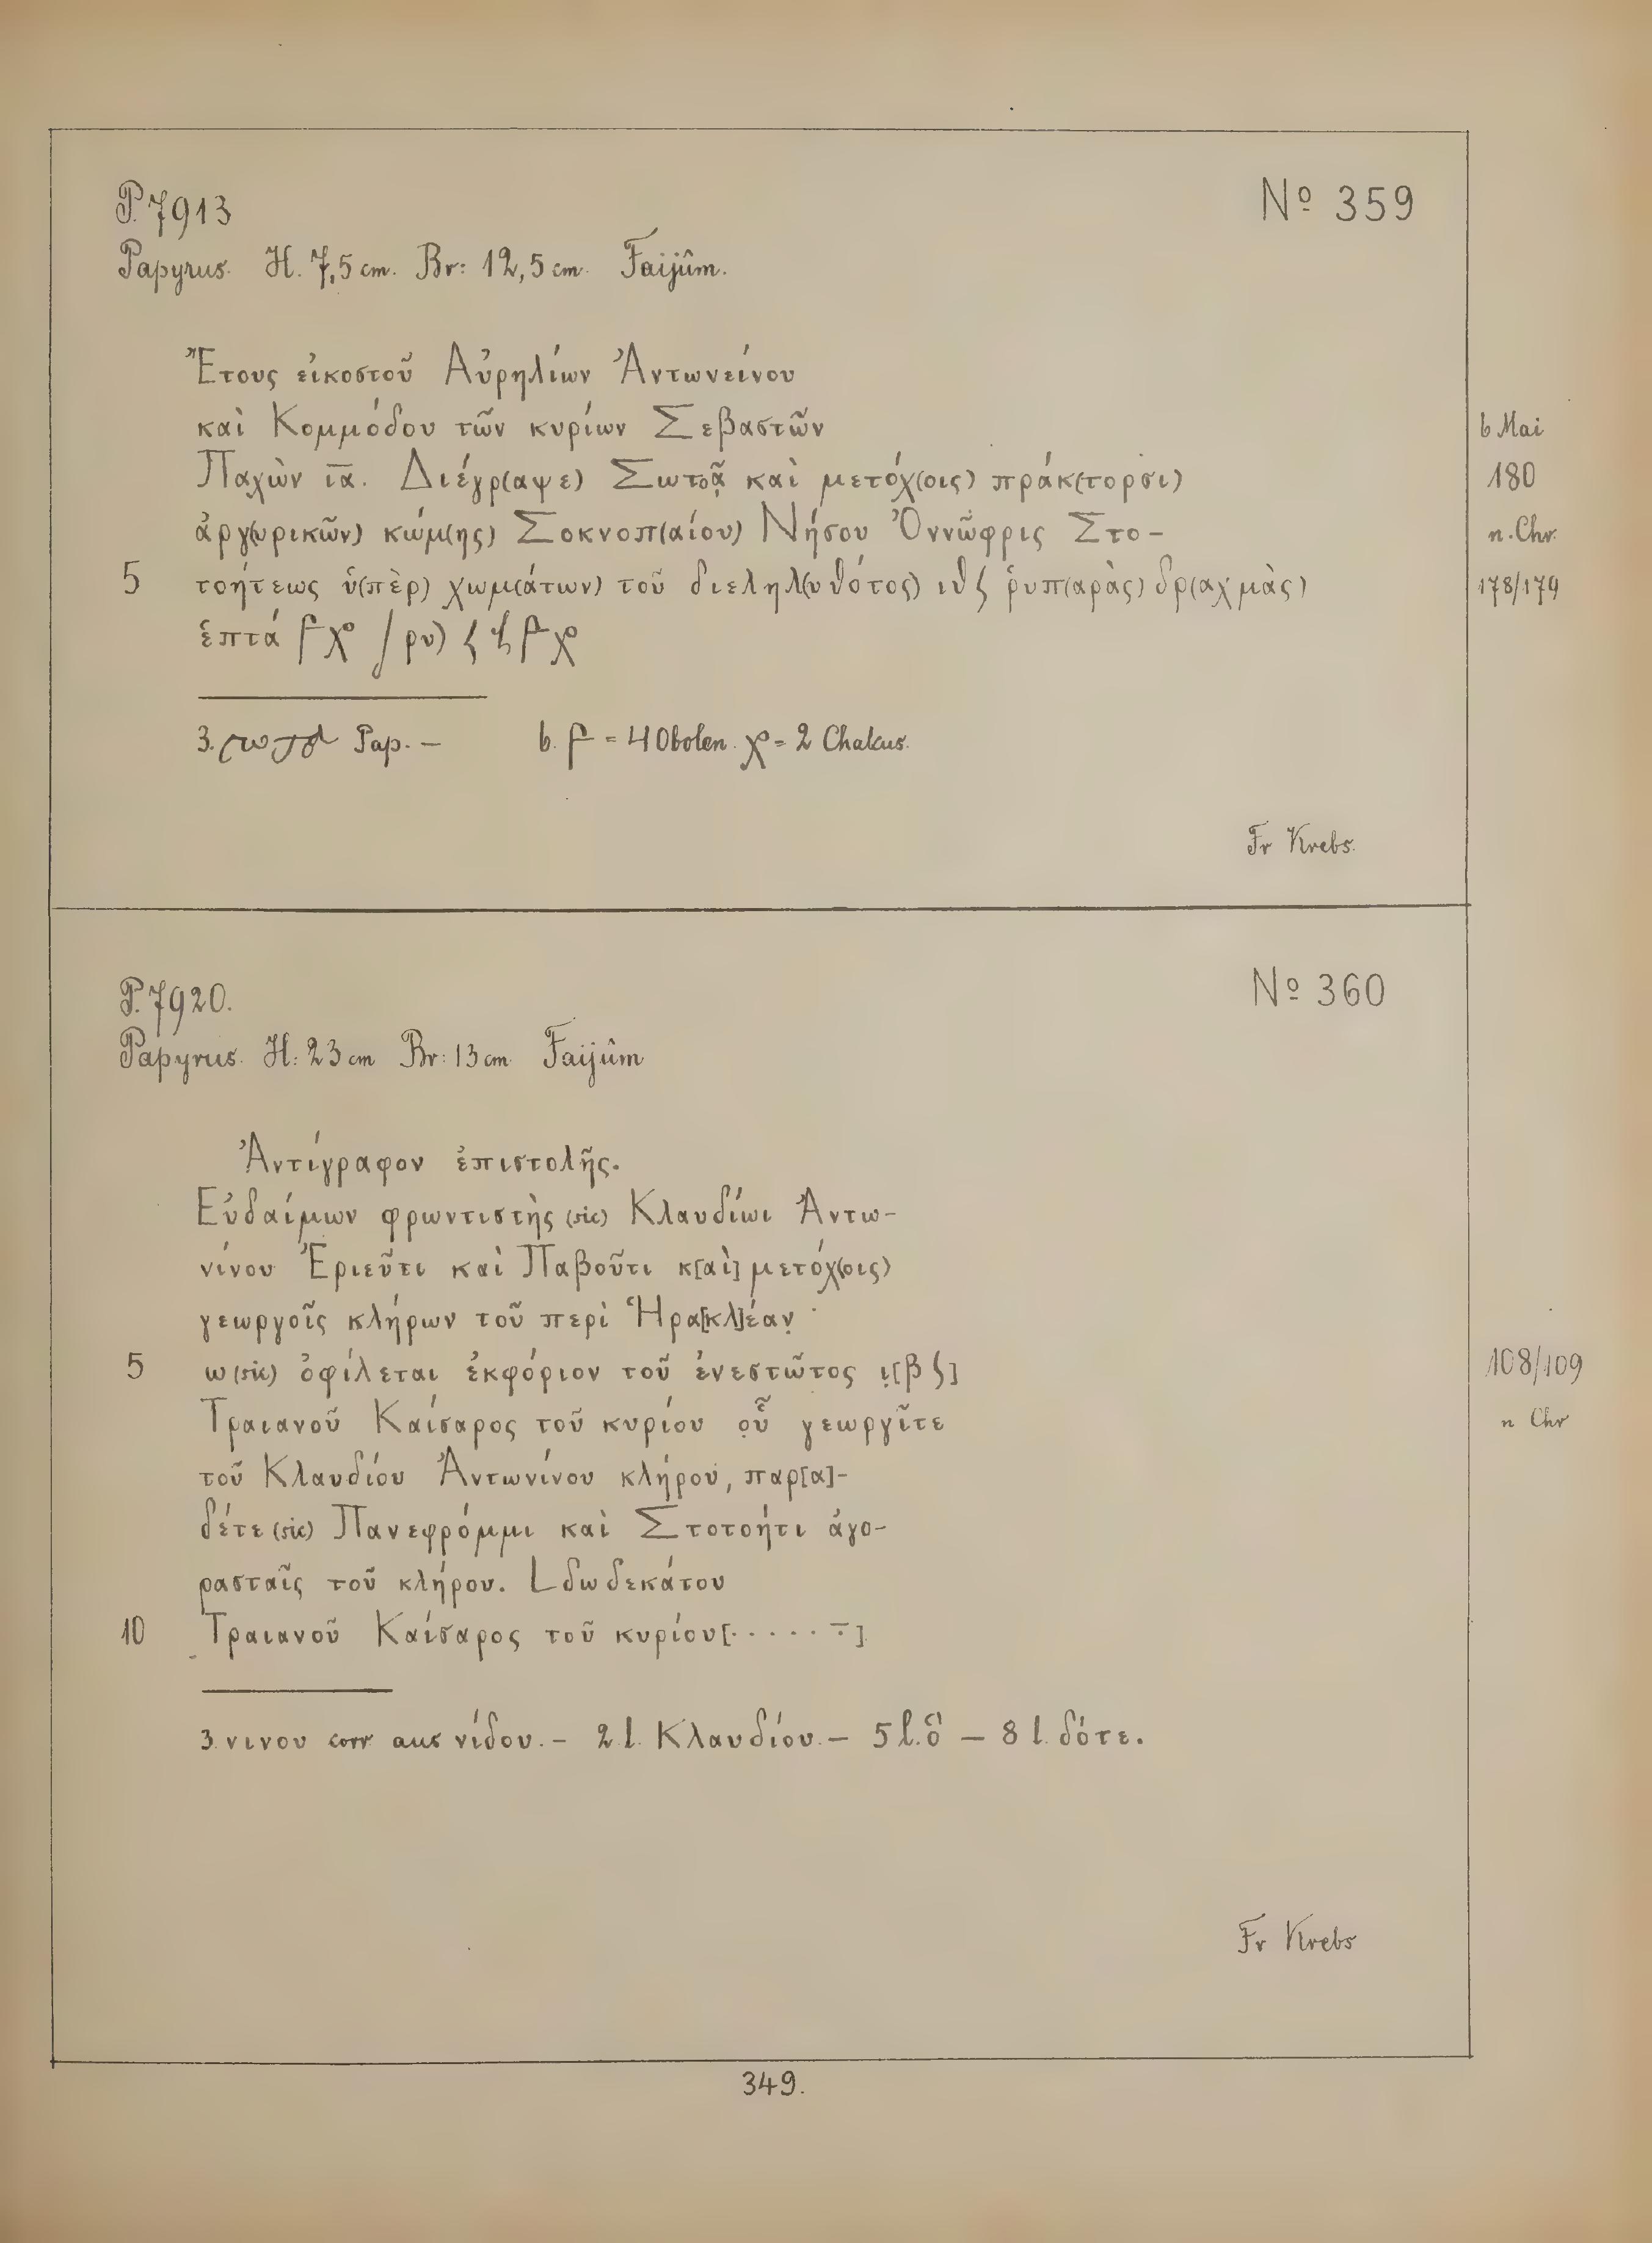 P. 7913 Nº 359
Papyrus. H. 7,5 cm. Br: 12,5 cm. Faijûm.
Ἔτους εἰκοστοῦ Αὐρηλίων Ἀντωνείνου
καὶ Κομμόδου τῶν κυρίων Σεβαστῶν 6 Mai
Παχὼν ι̅α̅. Διέγρ(αψε) Σωτᾷ καὶ μετόχ(οις) πράκ(τορσι) 180
ἀργ(υρικῶν) κώμ(ης) Σοκνοπ(αίου) Νήσου Ὀννῶφρις Στο- n. Chr.
5 τοήτεως ὑ(πὲρ) χωμ(άτων) τοῦ διεληλ(υθότος) ιθ ʃ ῥυπ(αρὰς) δρ(αχμὰς) 178/179
ἑπτά χο / ρυ) ζ χο
3. Pap. — 6. = 4 Obolen. χο = 2 Chalkus.
Fr Krebs.
P. 7920. Nº 360
Papyrus. H: 23 cm Br: 13 cm. Faijûm
Ἀντίγραφον ἐπιστολῆς.
Εὐδαίμων φρωντιστὴς (sic) Κλαυδίωι Ἀντω-
νίνου Ἑριεῦτι καὶ Παβοῦτι κ[αὶ] μετόχ(οις)
γεωργοῖς κλήρων τοῦ περὶ Ἡρα[κλ]έαν̣
5 ω (sic) ὀφίλεται ἐκφόριον τοῦ ἐνεστῶτος ι̣[β ʃ] 108/109
Τραιανοῦ Καίσαρος τοῦ κυρίου ο̣ὗ γεωργῖτε n Chr
τοῦ Κλαυδίου Ἀντωνίνου κλήρου, παρ[α]-
δέτε (sic) Πανεφρόμμι καὶ Στοτοήτι ἀγο-
ρασταῖς τοῦ κλήρου. L δωδεκάτου
10 Τραιανοῦ Καίσαρος τοῦ κυρίου [· · · · · ·̅]
3. νινου corr aus νίδου. — 2 l. Κλαυδίου. — 5 l. ὃ — 8 l. δότε.
Fr Krebs
349.